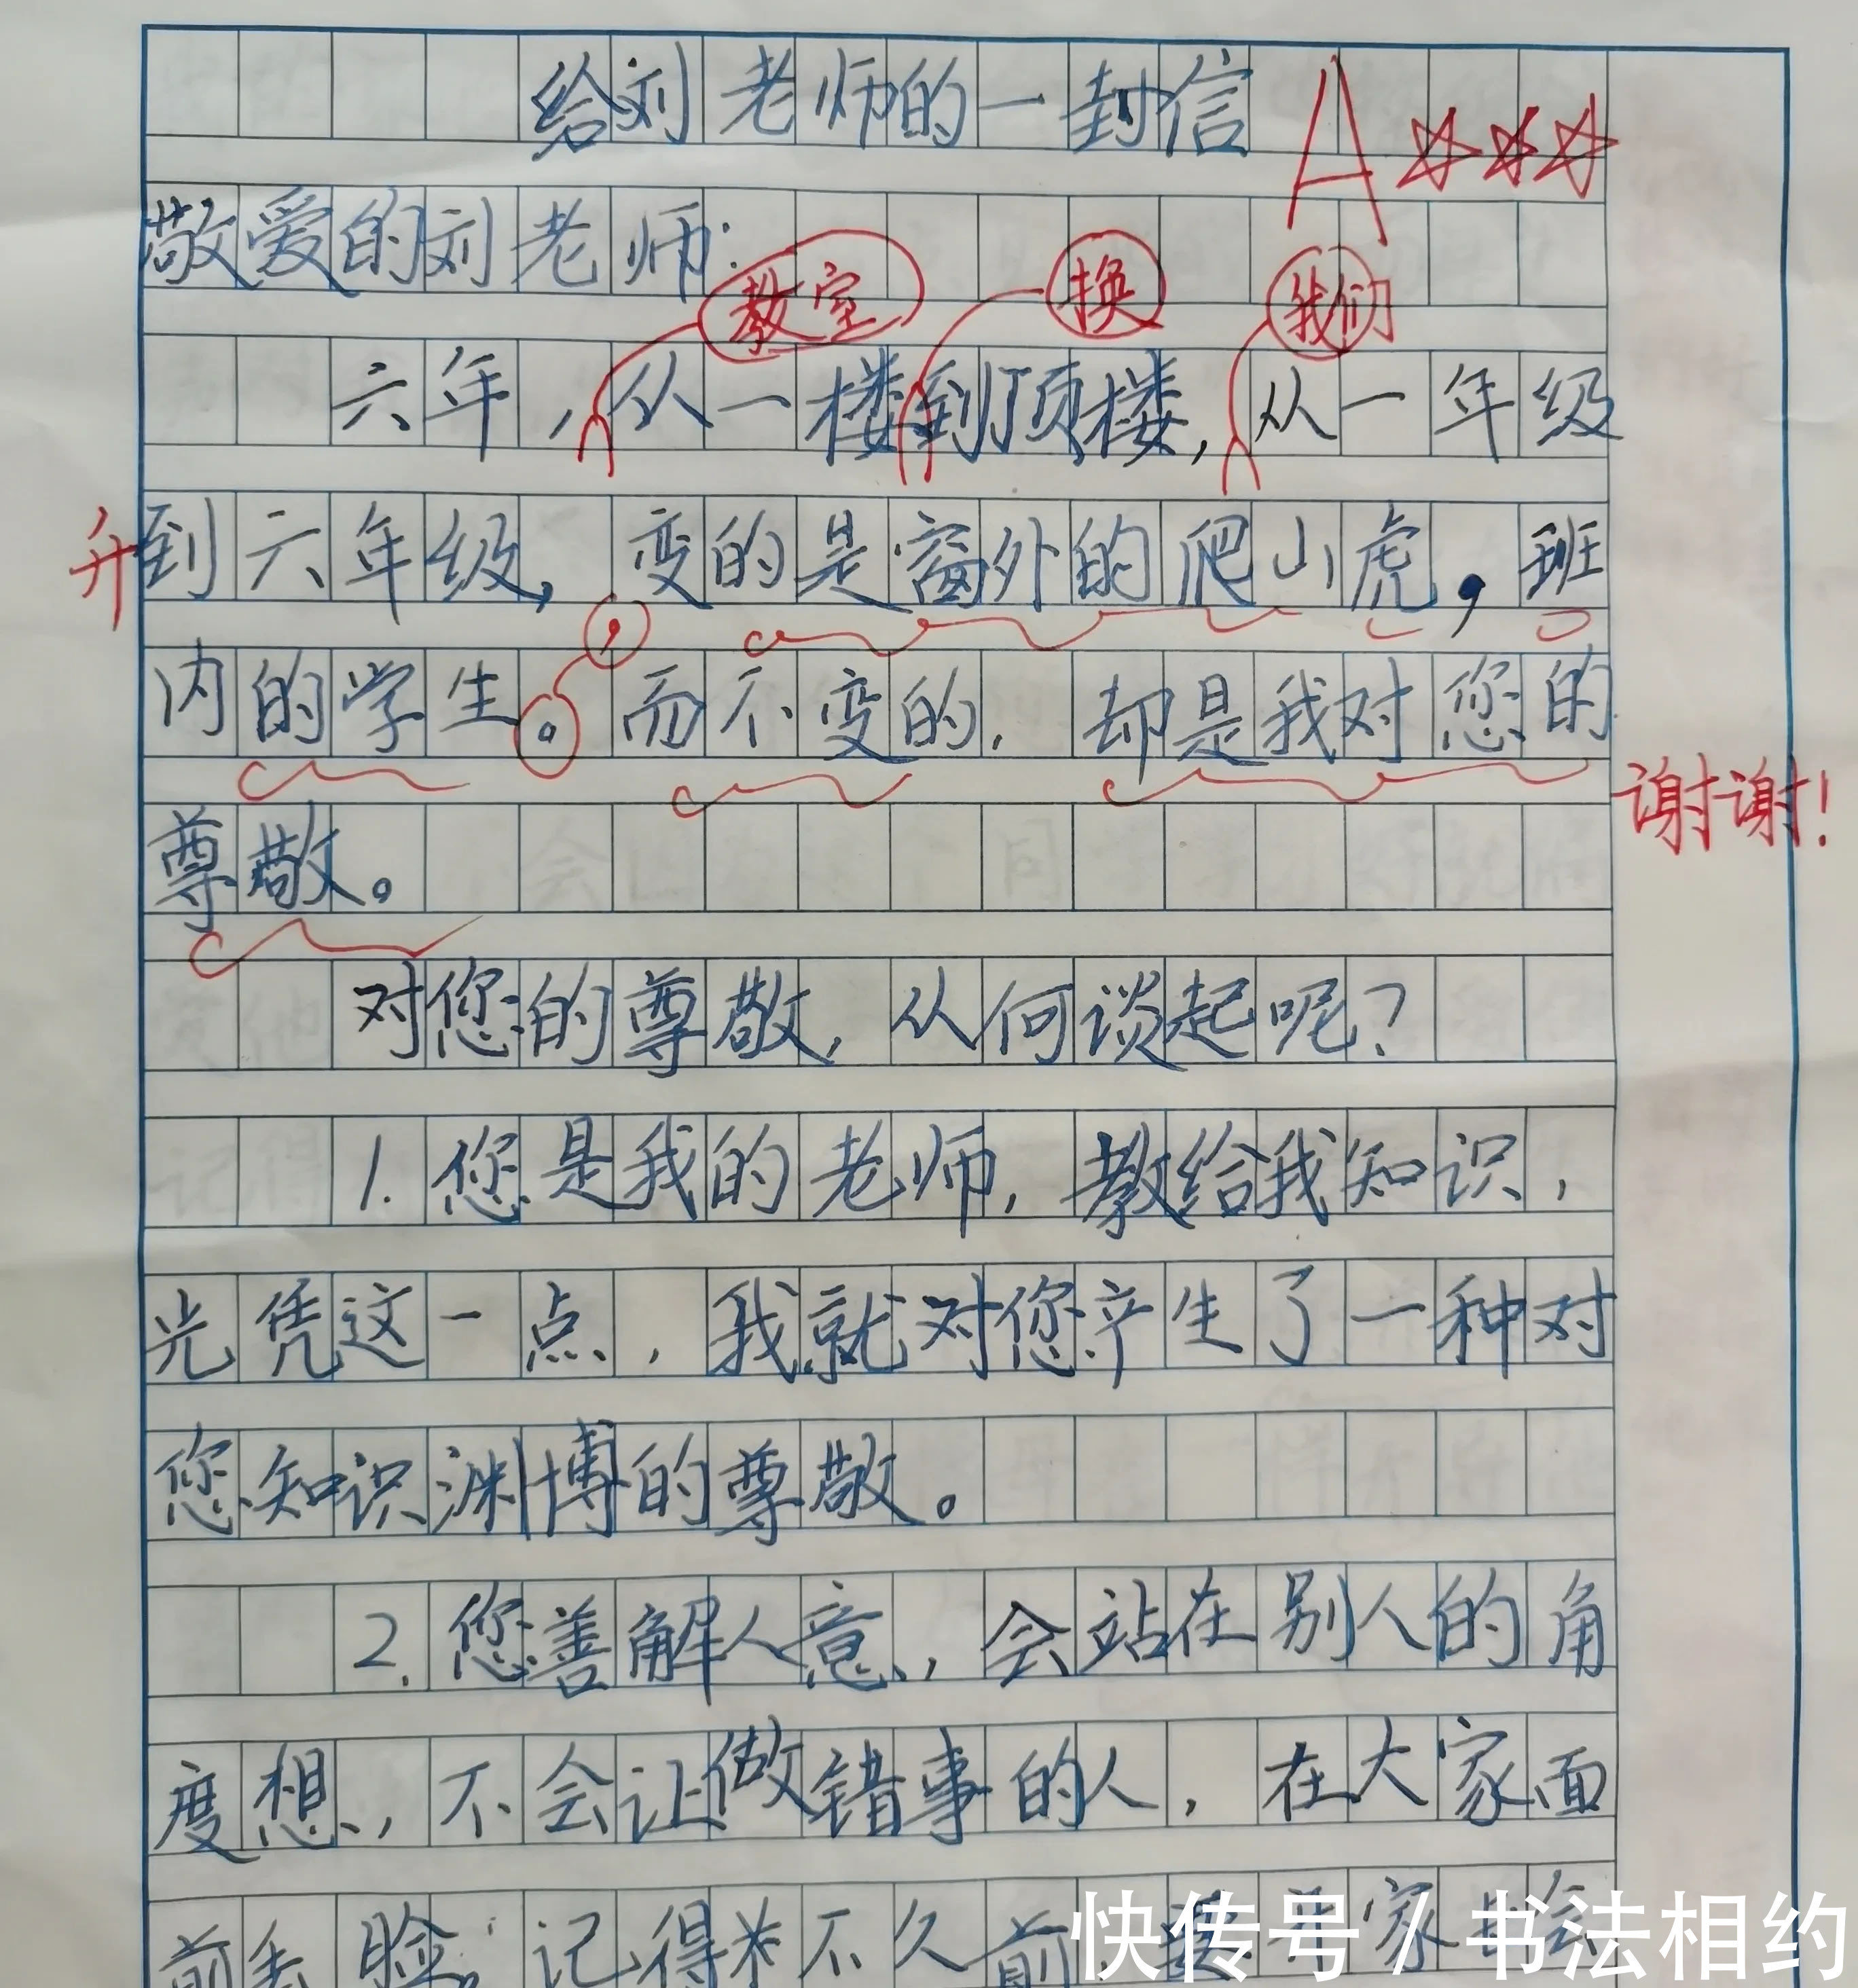 给刘老师的一封信
A
敬爱的刘老师:
教室 换 我们
六年,从一楼到顶楼,从一年级
升
到六年级,变的是窗外的爬山虎,班
,
内的学生。而不变的,却是我对您的
谢谢!
尊敬。
对您的尊敬,从何谈起呢?
1.您是我的老师,教给我知识,
光凭这一点,我就对您产生了一种对
您知识渊博的尊敬。
2.您善解人意,会站在别人的角
度想,不会让做错事的人,在大家面
前丢脸。记得 不久前 家 会
快传号/书法相约